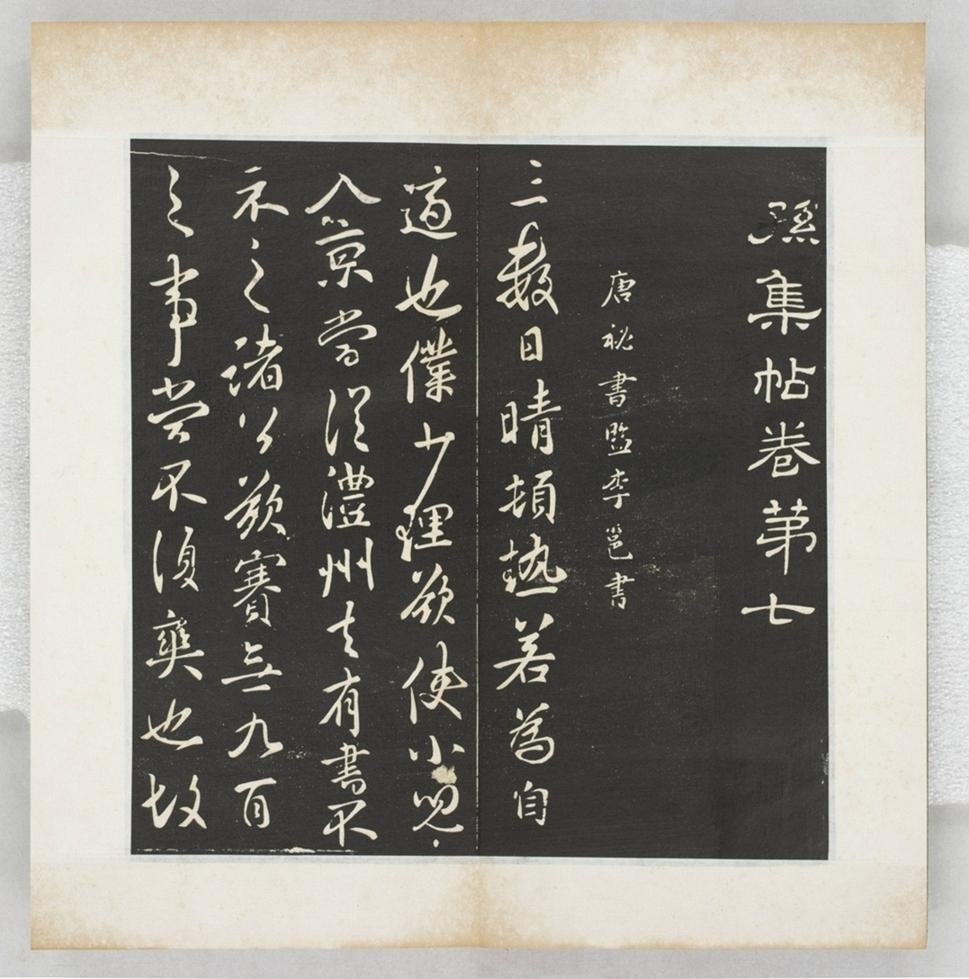 集帖卷第七
唐祕書監李邕書
三數日晴頓熱若為自
適也僕少理欲使小兒
入京當從澧州去有書不
示之諸公欲賽無九百
之事當不復爽也故